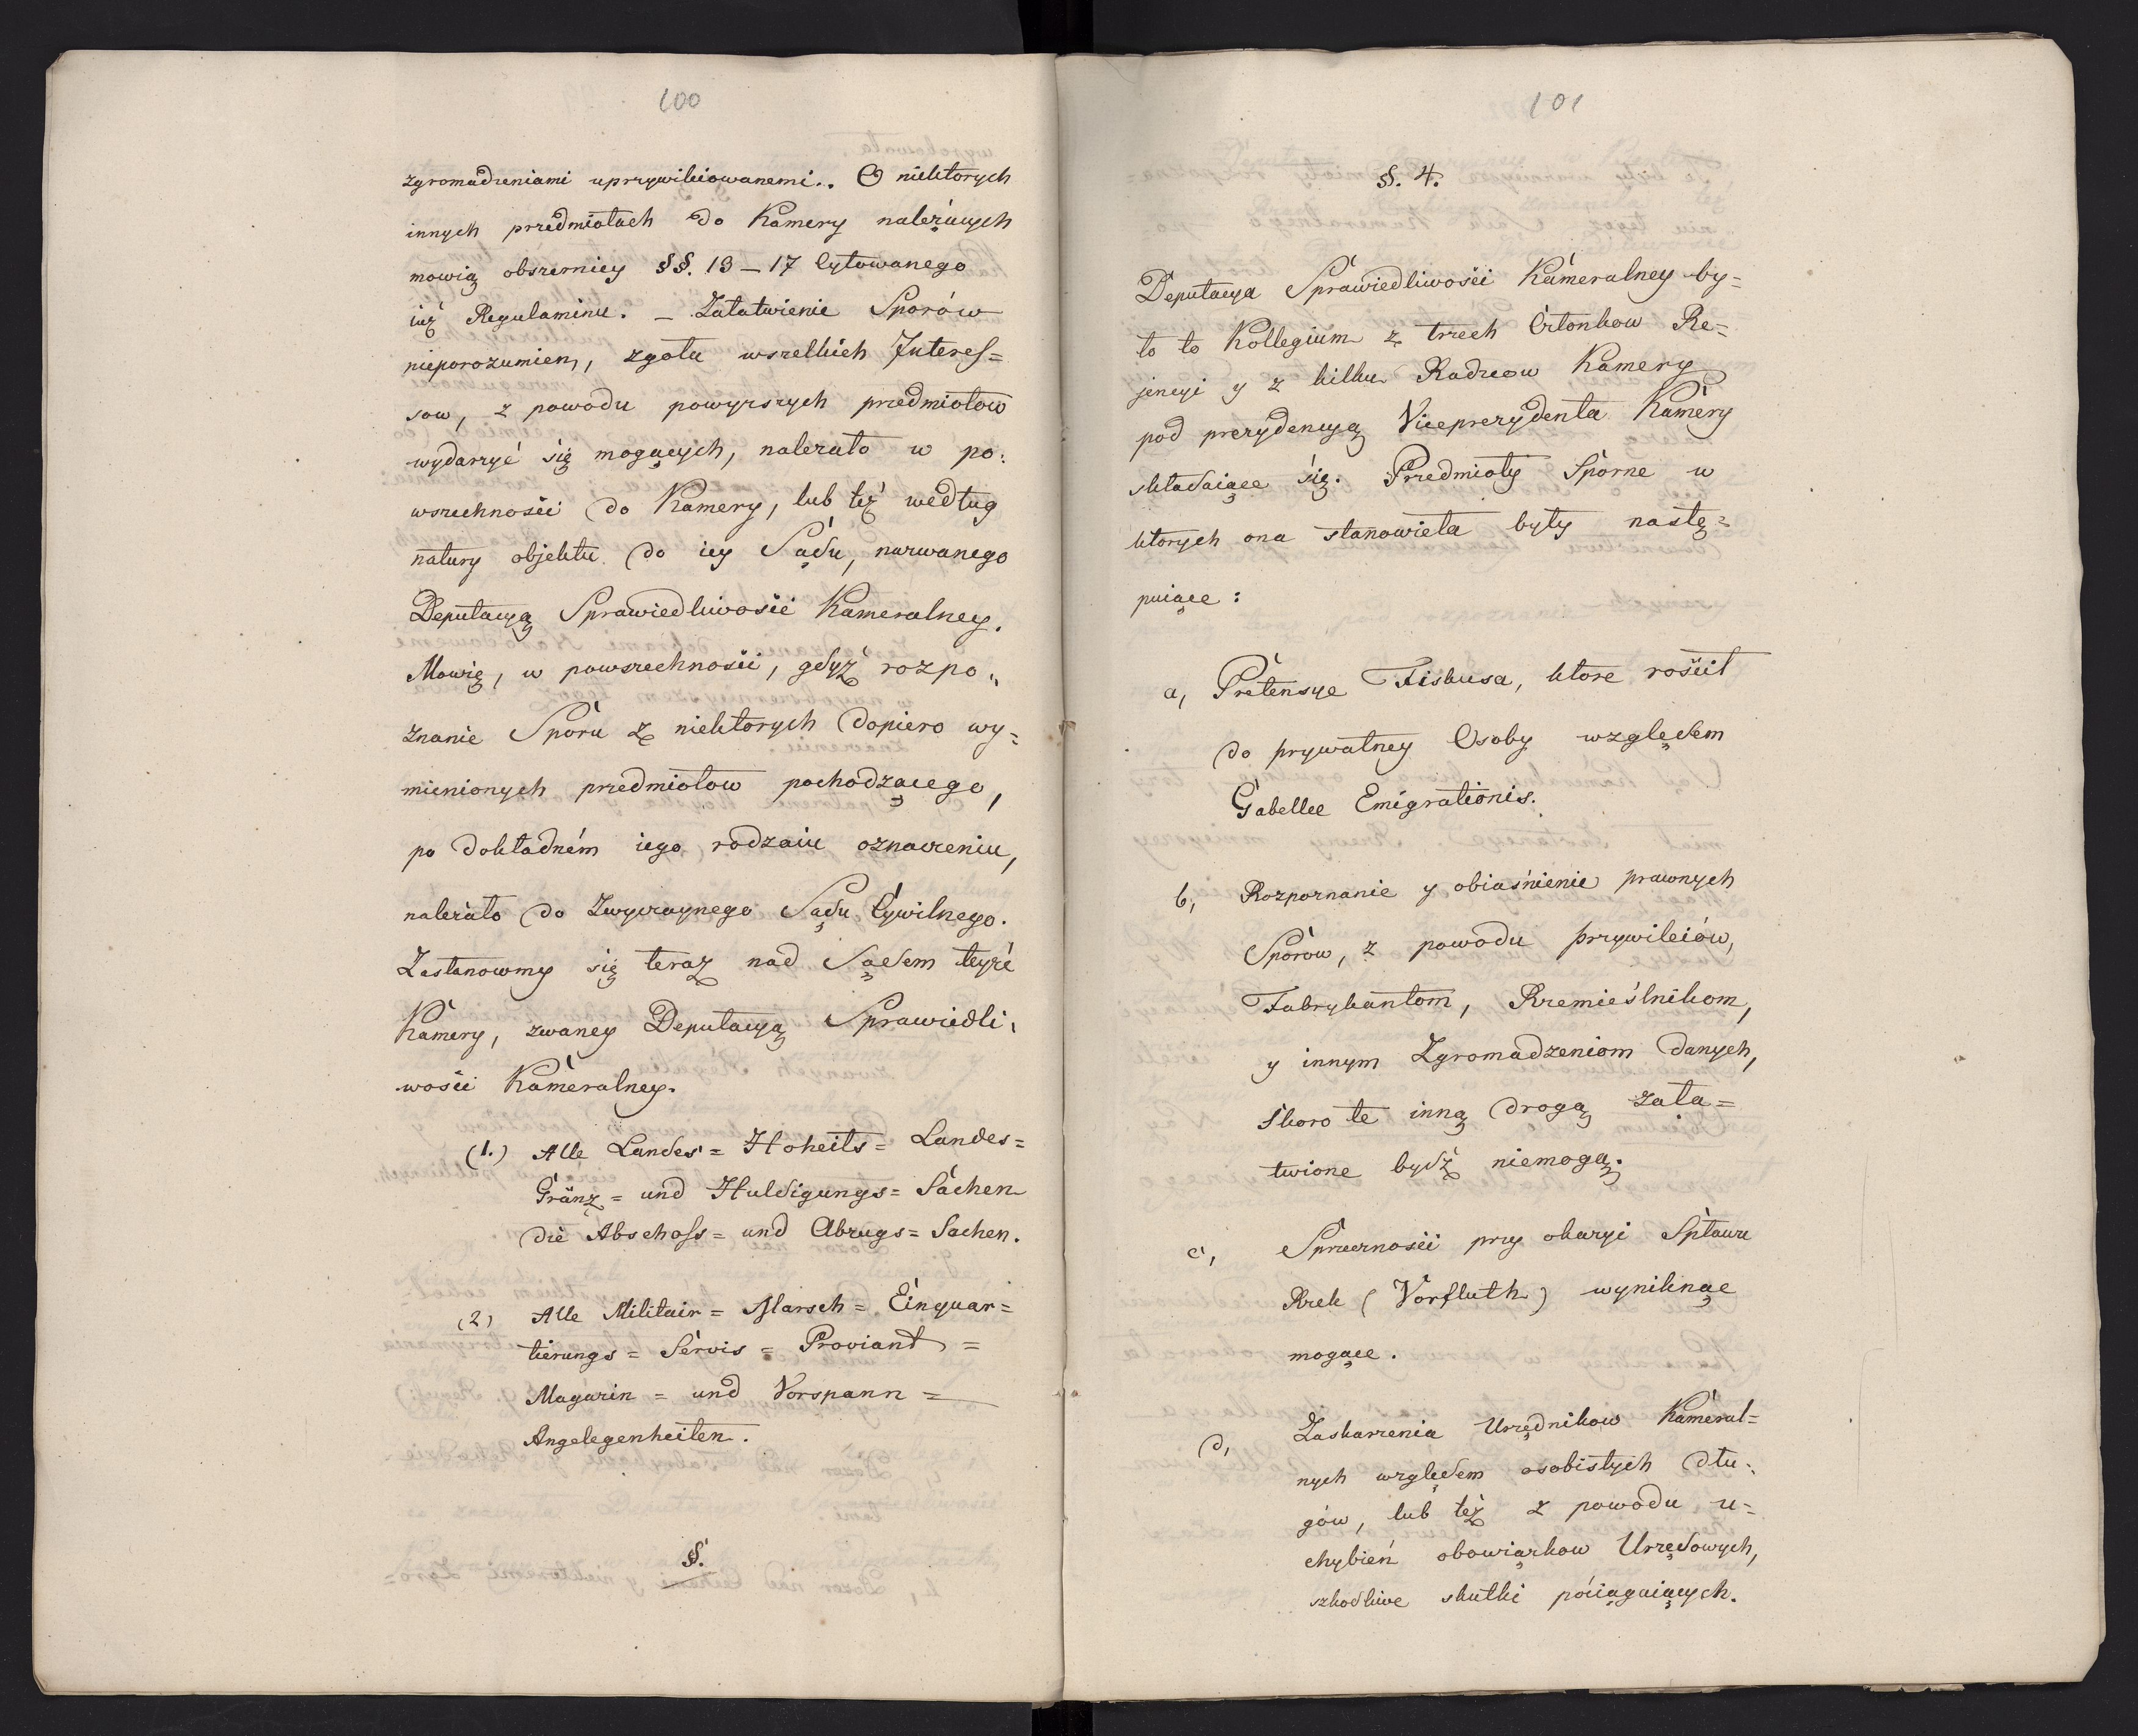 100
zgromadzeniami uprzywileiowanemi.. O niektorych
innych przedmiotach do Kamery należących
mowią obszerniey §§. 13 – 17 Cytowanego
iuż Regulaminu. – Załatwienie Sporów
nieporozumien, zgoła wszelkich Interes=
sow, z powodu powyższych przedmiotow
wydarzyć się mogących, należało w po:
wszechności do Kamery, lub też według
natury objektu do iey Sądu, nazwanego
Deputacyą Sprawiedliwości Kameralney.
Mowię, w powszechności, gdyż rozpo„
znanie Sporu z niektorych dopiero wy=
mienionych przedmiotow pochodzącego,
po dokładném iego rodzaiu oznaczeniu,
należało do Zwyczaynego Sądu Cywilnego.
Zastanowmy się teraz nad Sądem teyże
Kamery, zwaney Deputacyą Sprawiedli„
wości Kameralney.
(1.) Alle Landes = Hoheits = Landes=
Gränz = und Huldigungs = Sachen
die Abschoss = und Abzugs = Sachen.
(2) Alle Militair = Marsch = Einquar=
tierungs = Servis = Proviant =
Magazin = und Vorspann =
Angelegenheiten.
§.
101
§. 4.
Deputacya Sprawiedliwości Kameralney by=
ło to Kollegium z trzech Członkow Re=
jencyi y z kilku Radzcow Kamery
pod prezydencyą Viceprezydenta Kamery
składaiące się. Przedmioty Sporne w
ktorych ona stanowiła były nastę=
puiące:
a, Pretensye Fiskusa, ktore rościł
do prywatney Osoby względem
Gabellee Emigrationis.
b, Rozpoznanie y obiaśnienie prawnych
Sporow, z powodu przywileiów,
Fabrykantom, Rzemieślnikom,
y innym Zgromadzeniom danych,
Skoro te inną drogą zała=
twione bydź niemogą.
c, Sprzeczności przy okazyi Spławu
Rzek (Vorfluth) wyniknąć
mogące.
d, Zaskarzenia Urzędnikow Kameral=
nych względem osobistych dłu=
gów, lub też z powodu u=
chybień obowiązkow Urzędowych,
szkodliwe skutki pociągaiących.